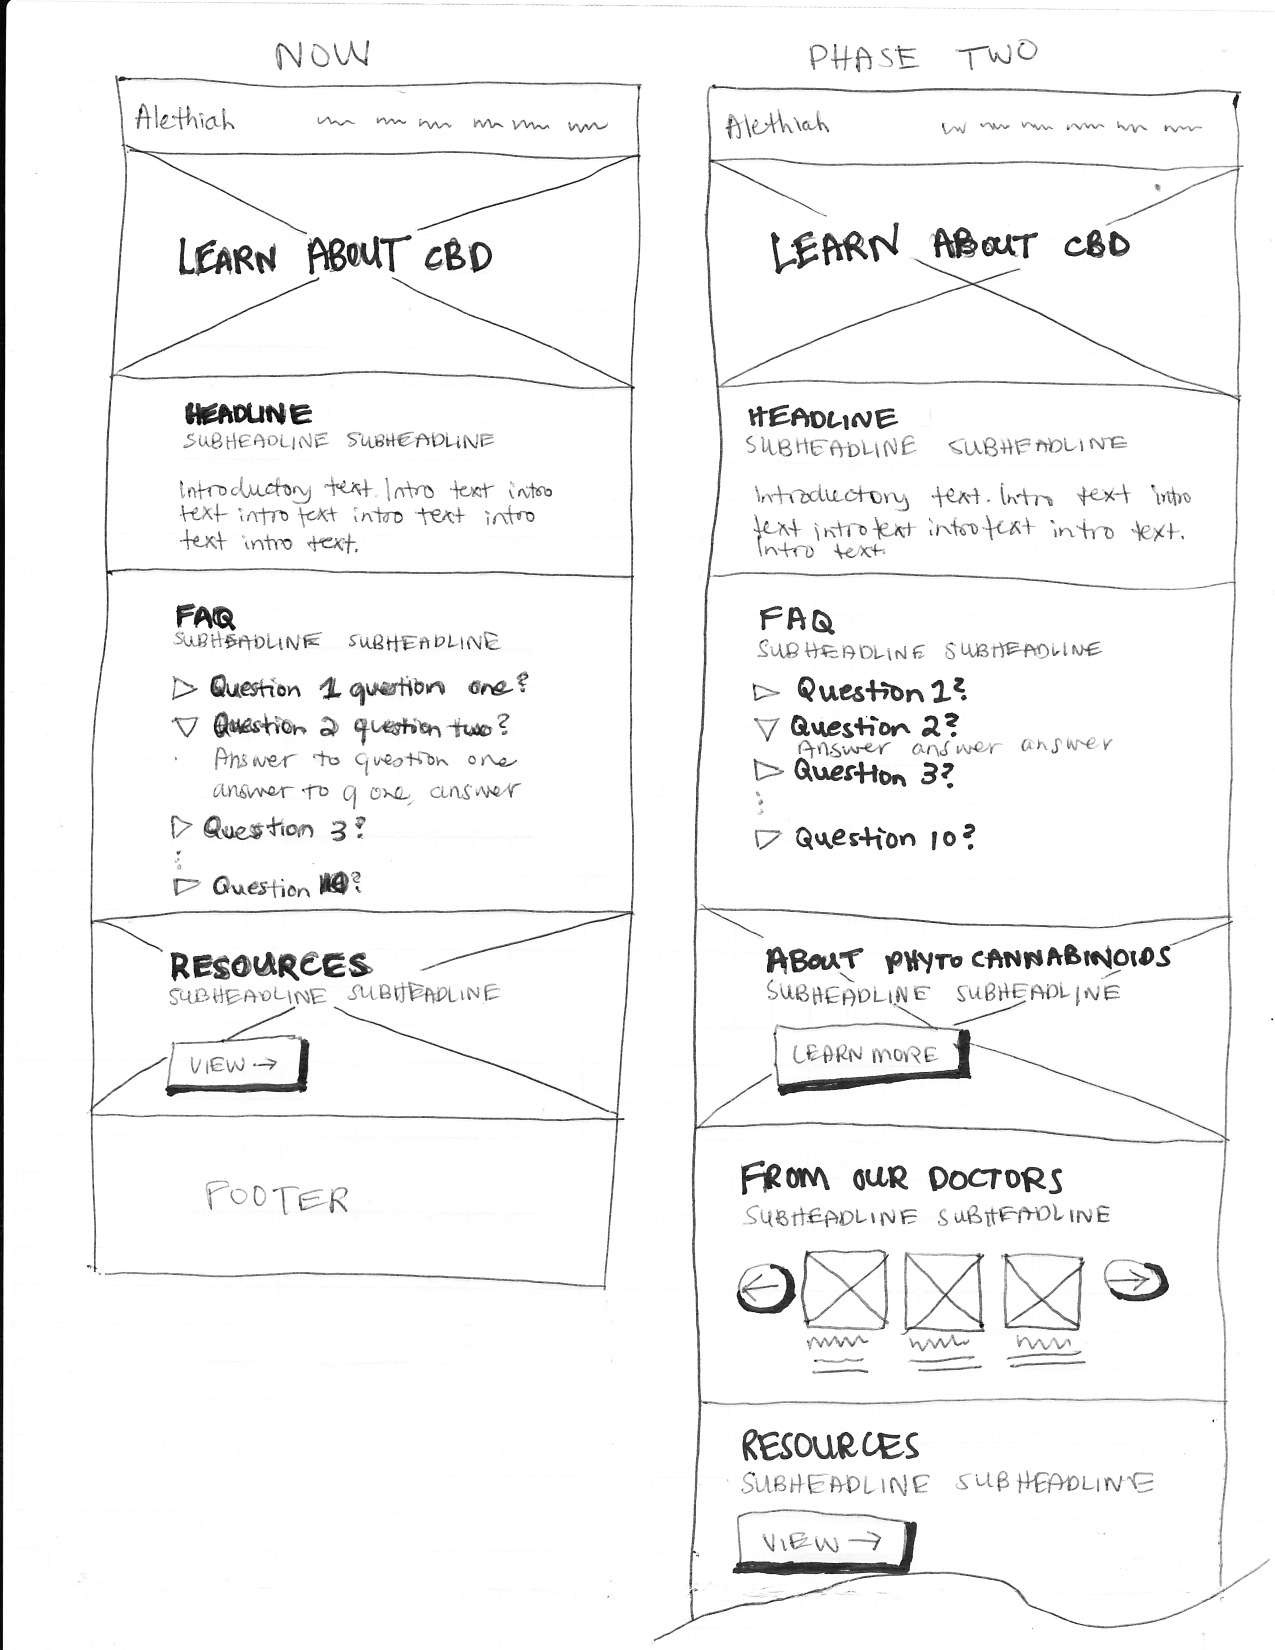 NOW
Alethiah
LEARN ABOUT CBD
HEADLINE
SUBHEADLINE SUBHEADLINE
Introductory text. Intro text intro
text intro text intro text intro
text intro text.
FAQ
SUBHEADLINE SUBHEADLINE
Question 1 question one?
Question 2 question two?
Answer to question one
answer to q one, answer
Question 3?
Question 10?
RESOURCES
SUBHEADLINE SUBHEADLINE
VIEW →
FOOTER
PHASE TWO
Alethiah
LEARN ABOUT CBD
HEADLINE
SUBHEADLINE SUBHEADLINE
Introductory text. Intro text intro
text intro text intro text intro text.
Intro text.
FAQ
SUBHEADLINE SUBHEADLINE
Question 1?
Question 2?
Answer answer answer
Question 3?
Question 10?
ABOUT PHYTOCANNABINOIDS
SUBHEADLINE SUBHEADLINE
LEARN MORE
FROM OUR DOCTORS
SUBHEADLINE SUBHEADLINE
RESOURCES
SUBHEADLINE SUBHEADLINE
VIEW →